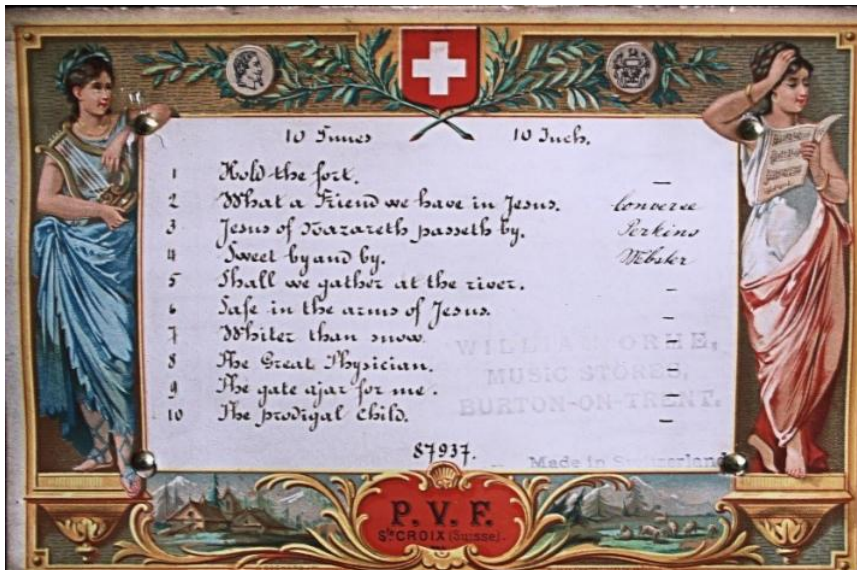 10 Tunes 10 Inch.
1 Hold the fort. –
2 What a Friend we have in Jesus. Converse
3 Jesus of Nazareth passeth by. Perkins
4 Sweet by and by. Webster
5 Shall we gather at the river. –
6 Safe in the arms of Jesus. –
7 Whiter than snow. –
8 The Great Physician. –
9 The gate ajar for me. –
10 The prodigal child. –
WILLIAM ORME,
MUSIC STORES,
BURTON-ON-TRENT.
87937.
Made in Switzerland
P.V.F.
Ste CROIX (Suisse).